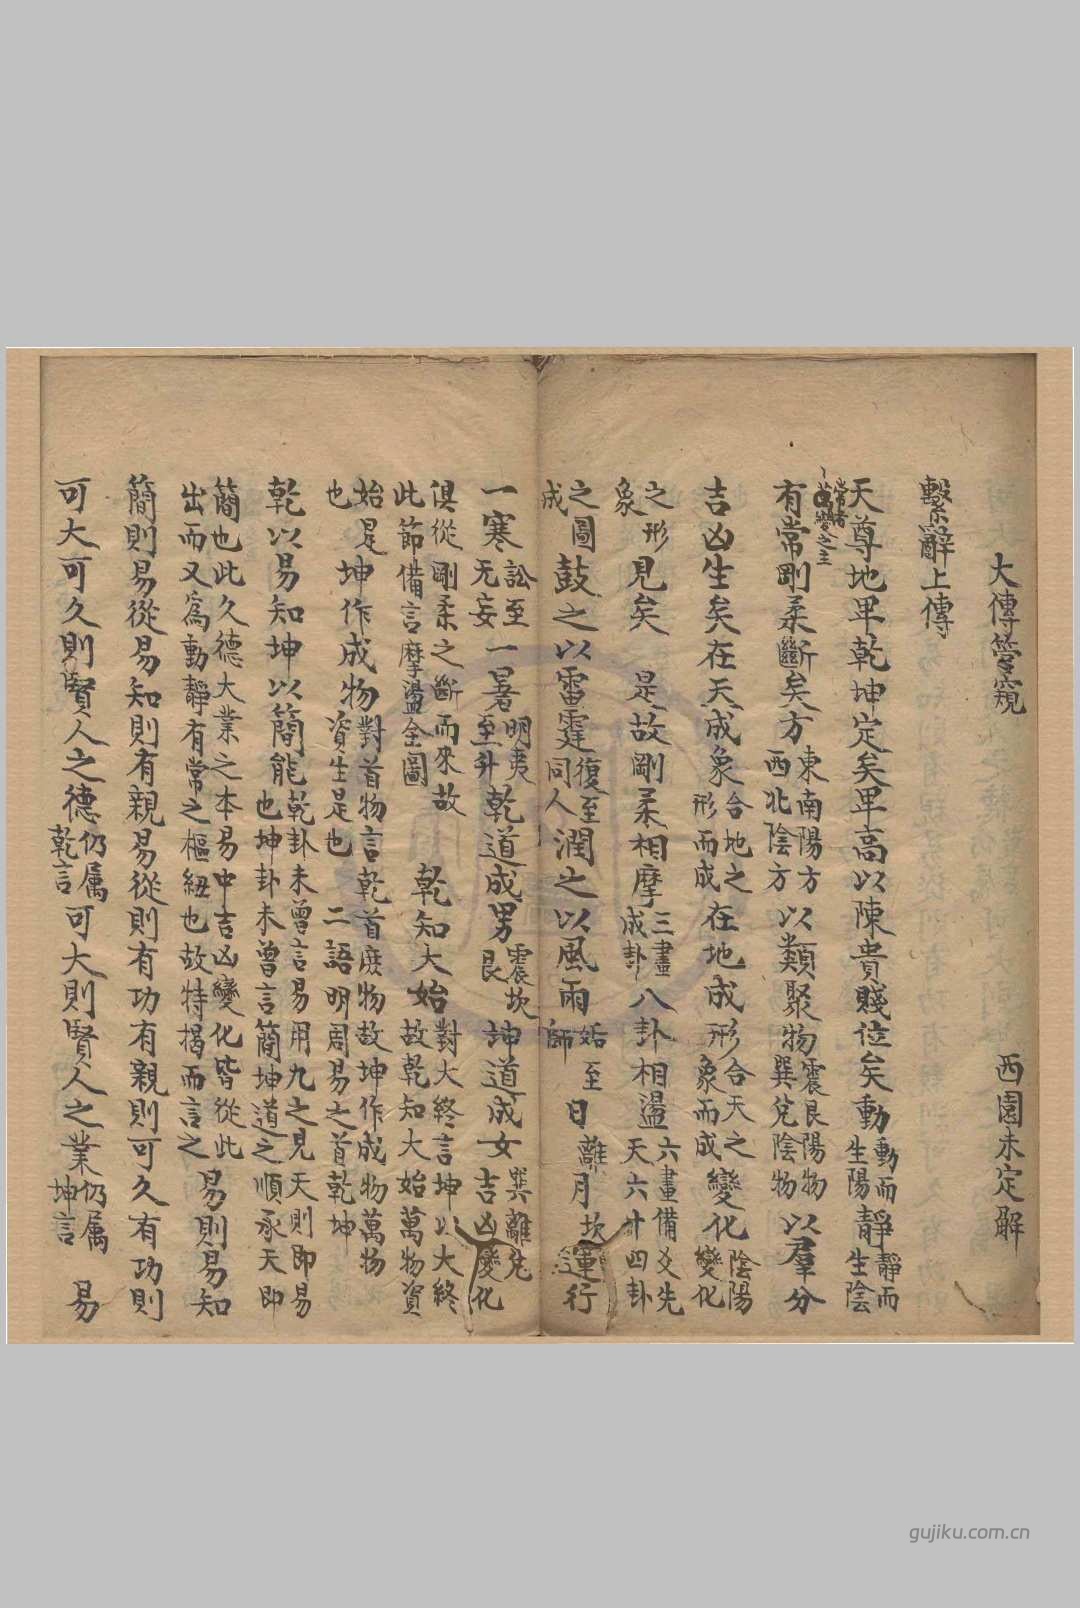 大傳管窺　西園未定解
繫辭上傳
天尊地卑乾坤定矣卑高以陳貴賤位矣動動而生陽靜靜而生陰
常者萬變之主
有常剛柔斷矣方東南陽方西北陰方以類聚物震艮陽物巽兌陰物以羣分
吉凶生矣在天成象合地之形而成在地成形合天之象而成變化陰陽變化
之形象見矣　是故剛柔相摩三畫成卦八卦相盪六畫備爻先天六十四卦
之圖成鼓之以雷霆復至同人潤之以風雨姤至師日離月坎運行
一寒訟至无妄一暑明夷至升乾道成男震坎艮坤道成女巽離兌吉凶變化
俱從剛柔之斷而來故此節備言摩盪全圖　乾知大始對大終言坤以大終故乾知大始萬物資
始是也坤作成物對首物言乾首庶物故坤作成物萬物資生是也　二語明周易之首乾坤
乾以易知坤以簡能乾卦未曾言易用九之見天則即易也坤卦未曾言簡坤道之順承天即
簡也此久德大業之本易中吉凶變化皆從此出而又爲動靜有常之樞紐也故特揭而言之易則易知
簡則易從易知則有親易從則有功有親則可久有功則
可大可久則賢人之德仍属乾言可大則賢人之業仍属坤言　易
gujiku.com.cn